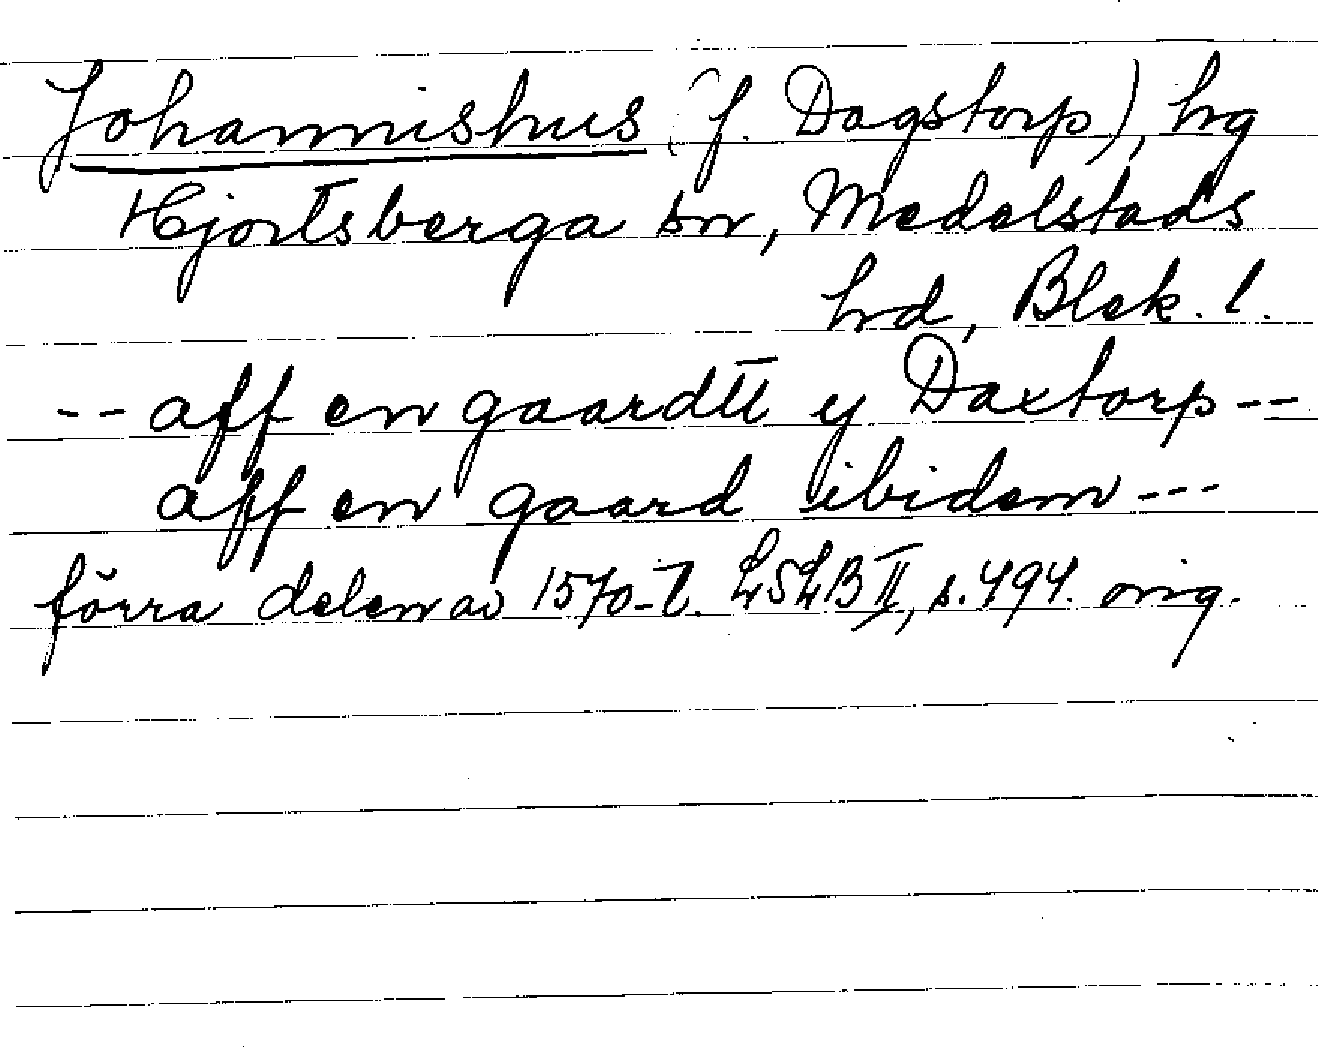 Johannishus (f. Dagstorp), hg
Hjortsberga sn, Medelstads
hd, Blek. l.
-- aff en gaardtt y Daxtorp --
aff en gaard ibidem ---
förra delen av 1570-t. LSLB II, s. 494. orig.